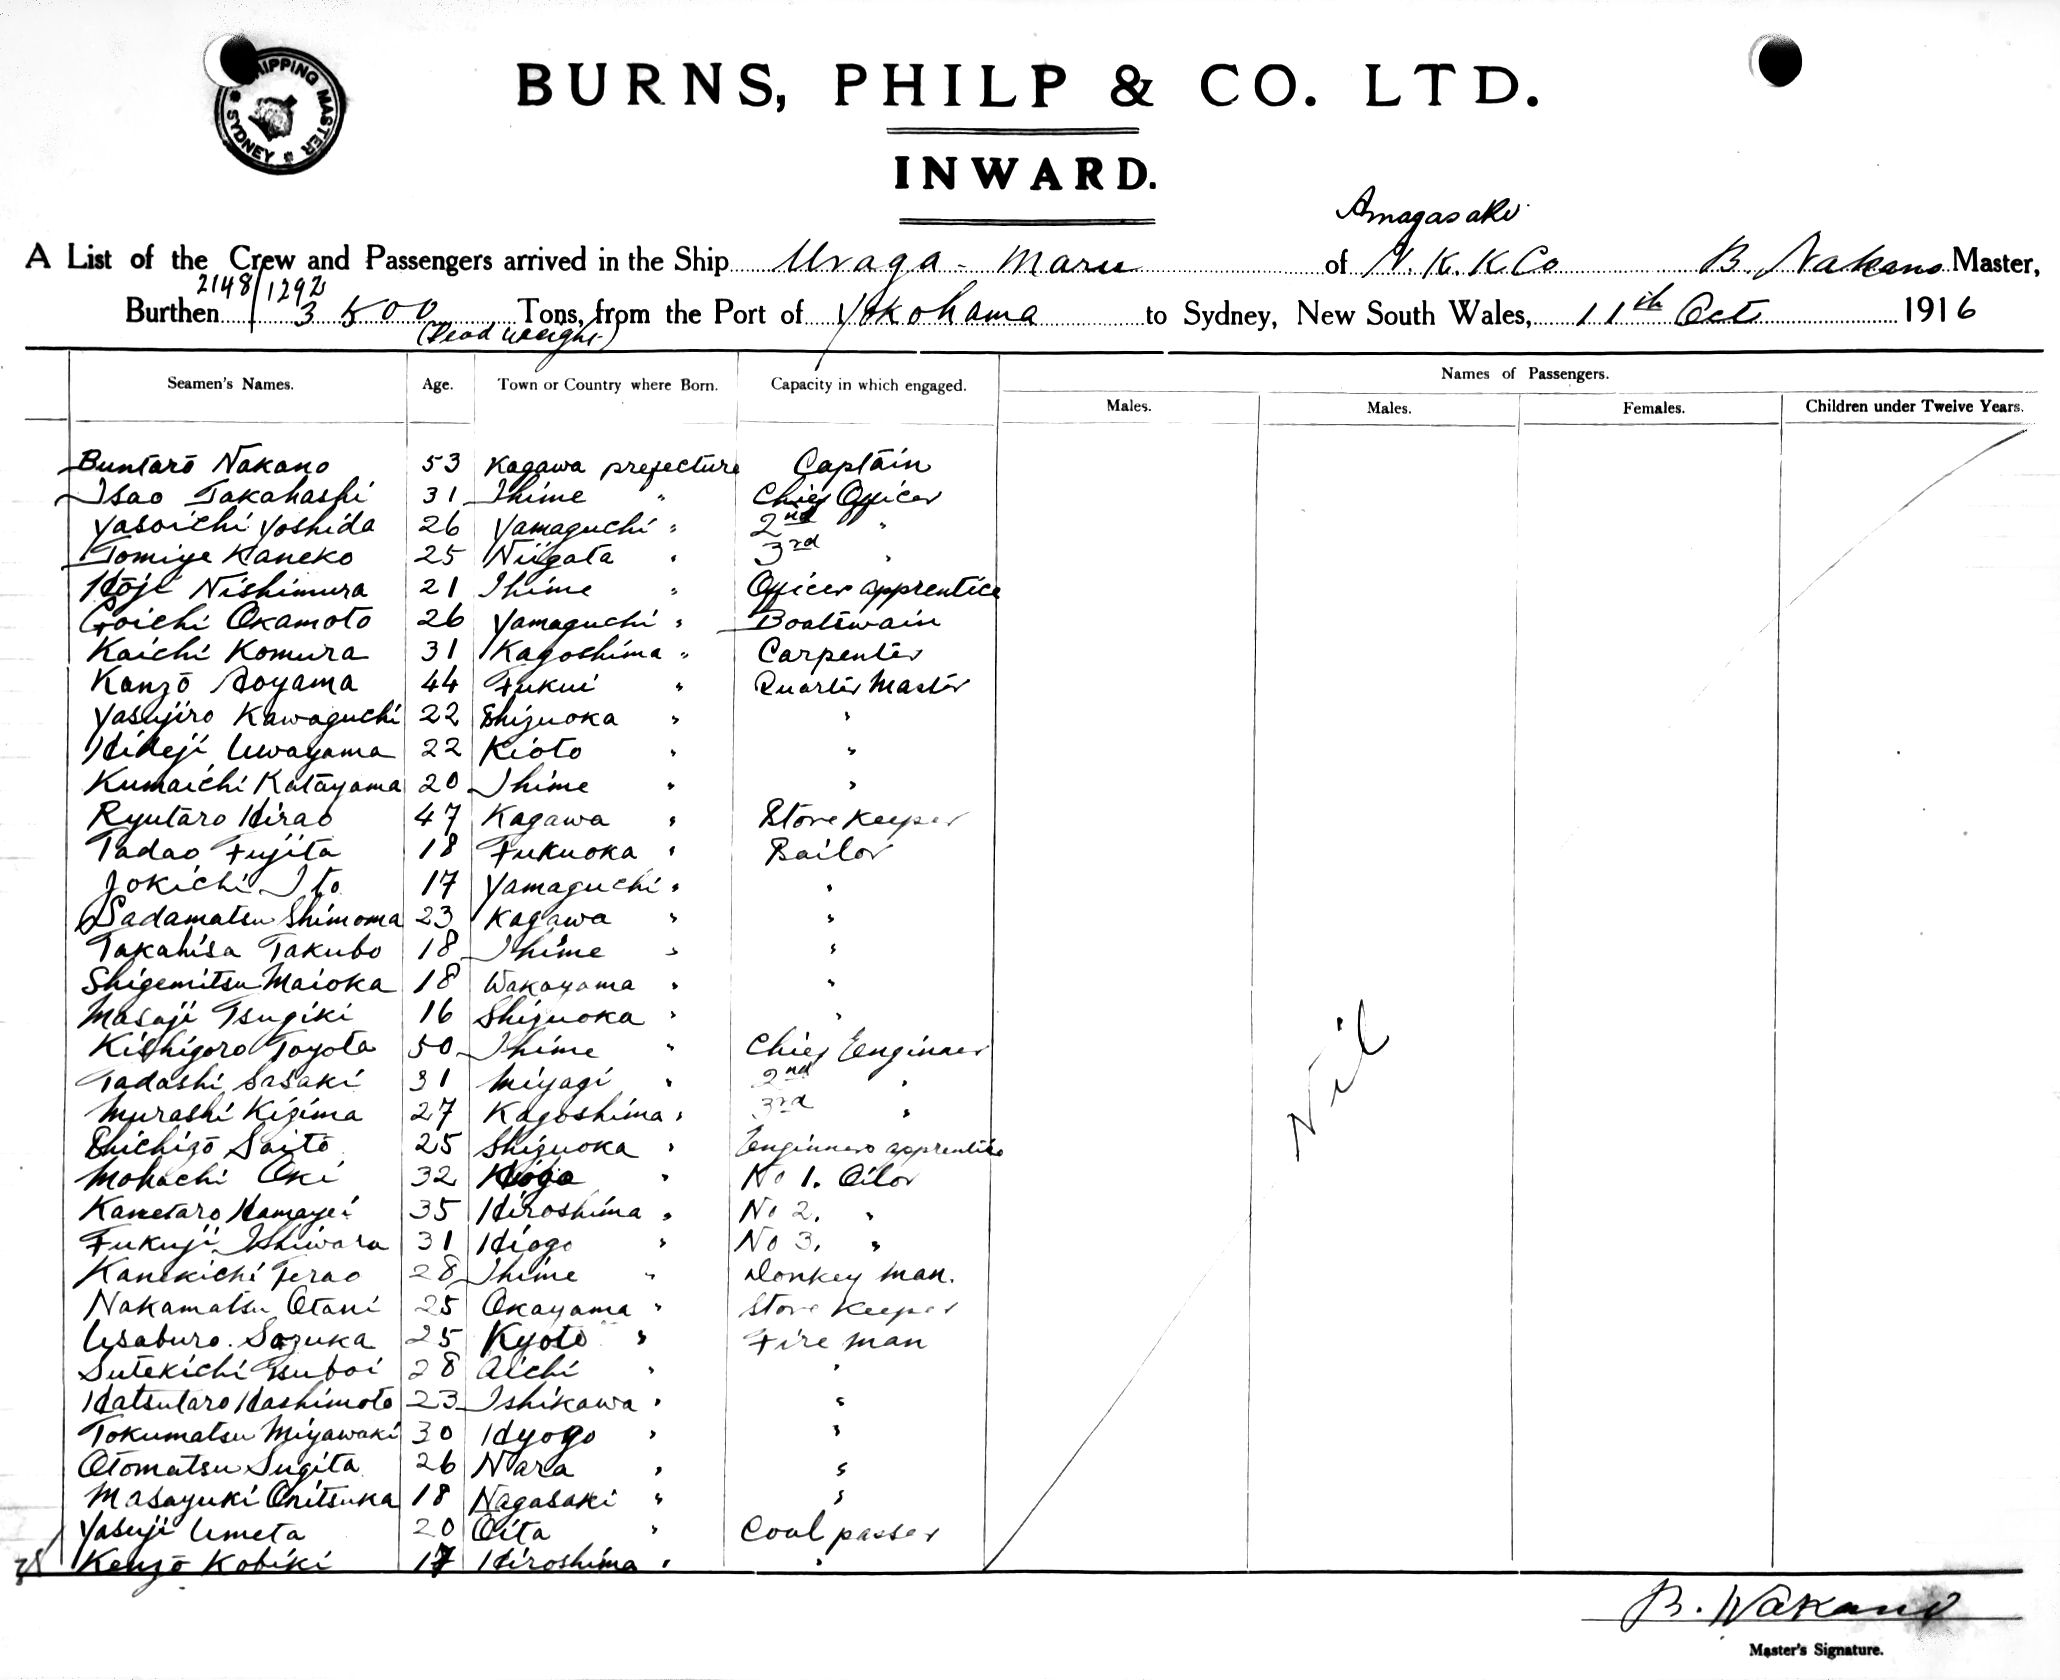 SHIPPING MASTER
SYDNEY
BURNS, PHILP & CO. LTD.
INWARD.
Amagasaki
A List of the Crew and Passengers arrived in the Ship Uraga - Maru of N. K. K Co B. Nakano Master,
2148/1292
Burthen 3500 Tons, from the Port of Yokohama to Sydney, New South Wales, 11th Oct 1916
(Dead weight)
Seamen's Names. Age. Town or Country where Born. Capacity in which engaged. Names of Passengers.
Males. Males. Females. Children under Twelve Years.
Buntarō Nakano 53 Kagawa prefecture Captain
Isao Takahashi 31 Ihime " Chief Officer
Yasoichi Yoshida 26 Yamaguchi " 2nd "
Tomiye Kaneko 25 Niigata " 3rd "
Kōji Nishimura 21 Ihime " Officer apprentice
Goichi Okamoto 26 Yamaguchi " Boatswain
Kaichi Komura 31 Kagoshima " Carpenter
Kanzō Aoyama 44 Fukui " Quarter Master
Yasujiro Kawaguchi 22 Shizuoka " "
Hideji Uwayama 22 Kioto " "
Kumaichi Katayama 20 Ihime " "
Ryutaro Hirao 47 Kagawa " Store Keeper
Tadao Fujita 18 Fukuoka " Sailor
Jokichi Ito 17 Yamaguchi " "
Sadamatsu Shimoma 23 Kagawa " "
Takahisa Takubo 18 Ihime " "
Shigemitsu Maioka 18 Wakayama " "
Masaji Tsugiki 16 Shizuoka " "
Kishigoro Toyota 50 Ihime " Chief Enginner
Tadashi Sasaki 31 Miyagi " 2nd "
Murashi Kizima 27 Kagoshima " 3rd "
Shichizō Saitō 25 Shizuoka " Enginners apprentice
Mohachi Oki 32 Hiogo " No 1. Oilor
Kanetaro Hamayei 35 Hiroshima " No 2. "
Fukuji Ishiwara 31 Hiogo " No 3. "
Kanekichi Terao 28 Ihime " Donkey man.
Nakamatsu Otani 25 Okayama " Store Keeper
Usaburo. Sazuka 25 Kyoto " Fire man
Sutekichi Tsuboi 28 Aichi " "
Hatsutaro Hashimoto 23 Ishikawa " "
Tokumatsu Miyawaki 30 Hyogo " "
Otomatsu Sugita 26 Nara " "
Masayuki Onitsuka 18 Nagasaki " "
Yasuji Umeta 20 Oita " Coal passer
Kenzō Kobiki 17 Hiroshima " "
Nil
B. Nakano
Master's Signature.